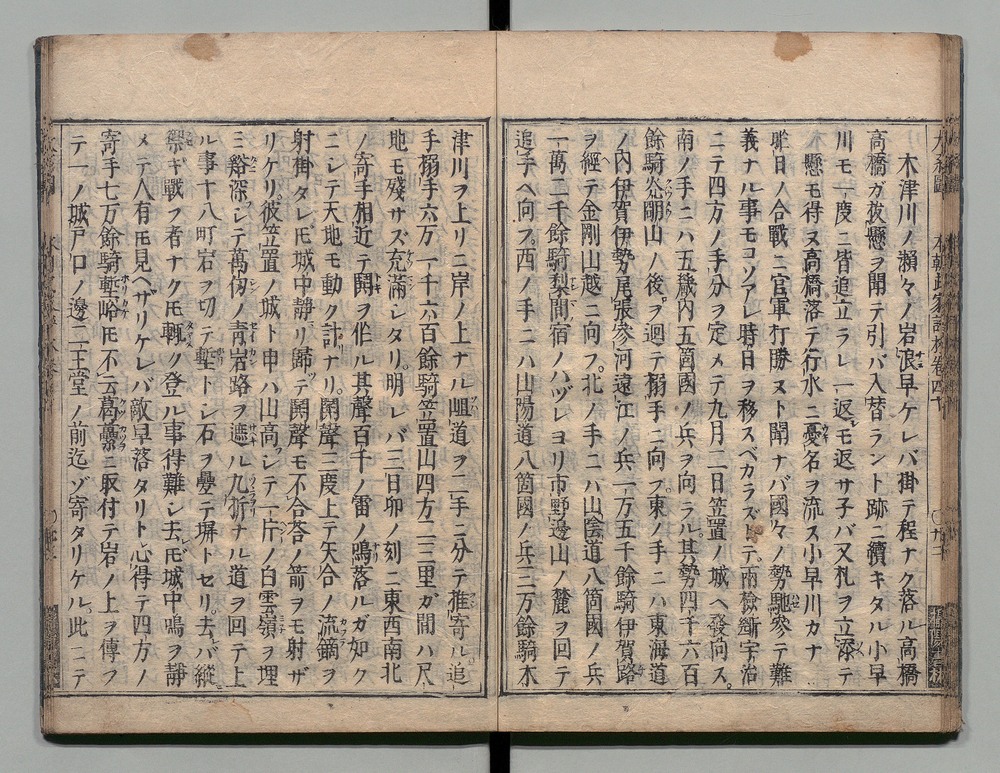 木津川ノ瀬々ノ岩浪早ケレバ掛テ程ナク落ル高橋
高橋ガ抜懸ヲ聞テ引バ入替ラント跡ニ續キタル小早
川モ一度ニ皆追立ラレ一返モ返サ子バ又札ヲ立添テ
懸モ得ヌ高橋落テ行水ニ憂名ヲ流ス小早川カナ
昨日ノ合戰ニ官軍打勝ヌト聞ナバ國々ノ勢馳參テ難
義ナル事モコソアレ時日ヲ移スベカラズトテ兩檢斷宇治
ニテ四方ノ手分ヲ定メテ九月二日笠置ノ城ヘ發向ス
南ノ手ニハ五畿内五箇國ノ兵ヲ向ラル其勢四千六百
餘騎光明山ノ後ヲ廻テ搦手ニ向フ東ノ手ニハ東海道
ノ内伊賀伊勢尾張參河遠江ノ兵一万五千餘騎伊賀路
ヲ經テ金剛山越ニ向フ北ノ手ニハ山陰道八箇國ノ兵
一萬二千餘騎梨間宿ノハヅレヨリ市野邊山ノ麓ヲ回テ
追手ヘ向フ西ノ手ニハ山陽道八箇國ノ兵三万餘騎木
津川ヲ上リニ岸ノ上ナル岨道ヲ二手ニ分テ推寄ル追
手搦手六万一千六百餘騎笠置山四方二三里ガ間ハ尺
地モ殘サズ充滿シタリ明レバ三日卯ノ刻ニ東西南北
ノ寄手相近テ鬨ヲ作ル其聲百千ノ雷ノ鳴落ルガ如ク
ニシテ天地モ動ク計ナリ鬨聲三度上テ矢合ノ流鏑ヲ
射掛タレ𪜈城中靜リ歸テ鬨聲モ不合答ノ箭ヲモ射ザ
リケリ彼笠置ノ城ト申ハ山高シテ一片ノ白雲嶺ヲ埋
ミ谷深シテ萬仞ノ青岩路ヲ遮ル九折ナル道ヲ回テ上
ル事十八町岩ヲ切テ塹トシ石ヲ疊テ塀トセリ去バ縱
禦ギ戰フ者ナク𪜈輒ク登ル事得難シ去𪜈城中鳴ヲ靜
メテ人有𪜈見ヘザリケレバ敵早落タリト心得テ四方ノ
寄手七万餘騎塹峪𪜈不云葛蘽ニ取付テ岩ノ上ヲ傳フ
テ一ノ城戸口ノ邊二王堂ノ前迄ゾ寄タリケル此ニテ